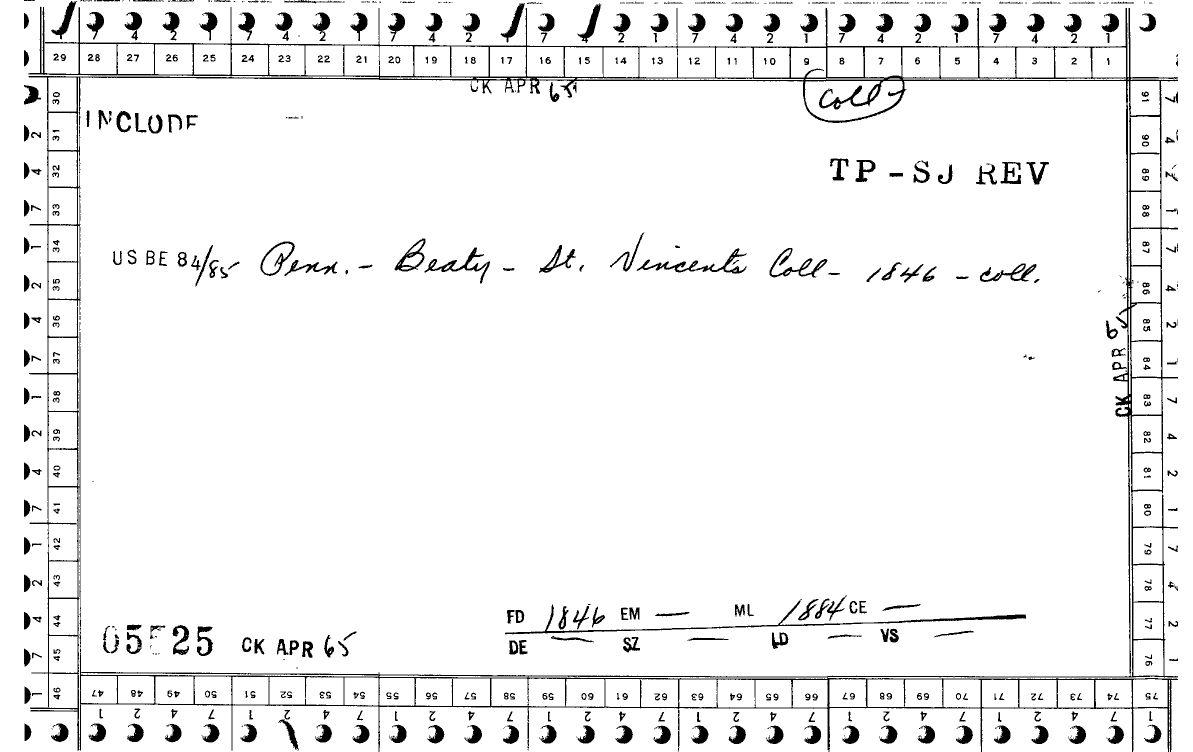 7 4 2 1 7 4 2 1 7 4 2 1 7 4 2 1 7 4 2 1 7 4 2 1 7 4 2 1
29 28 27 26 25 24 23 22 21 20 19 18 17 16 15 14 13 12 11 10 9 8 7 6 5 4 3 2 1
CK APR 65
Coll
INCLUDE
TP-SJ REV
US BE 84/85 Penn. - Beaty - St. Vincent's Coll - 1846 - coll.
CK APR 65
FD 1846 EM — ML 1884 CE —
DE — SZ — LD — VS —
05525 CK APR 65
30 31 32 33 34 35 36 37 38 39 40 41 42 43 44 45 46
91 90 89 88 87 86 85 84 83 82 81 80 79 78 77 76 75
47 48 49 50 51 52 53 54 55 56 57 58 59 60 61 62 63 64 65 66 67 68 69 70 71 72 73 74
1 2 4 7 1 2 4 7 1 2 4 7 1 2 4 7 1 2 4 7 1 2 4 7 1 2 4 7 1